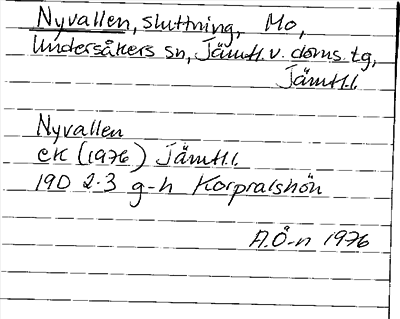 Nyvallen, sluttning, Mo,
Undersåkers sn, Jämtl. v. doms. tg,
Jämtl. l.
Nyvallen
ek (1976) Jämtl. l.
19D 2-3 g-h Korpralshön
A.Ö-n 1976